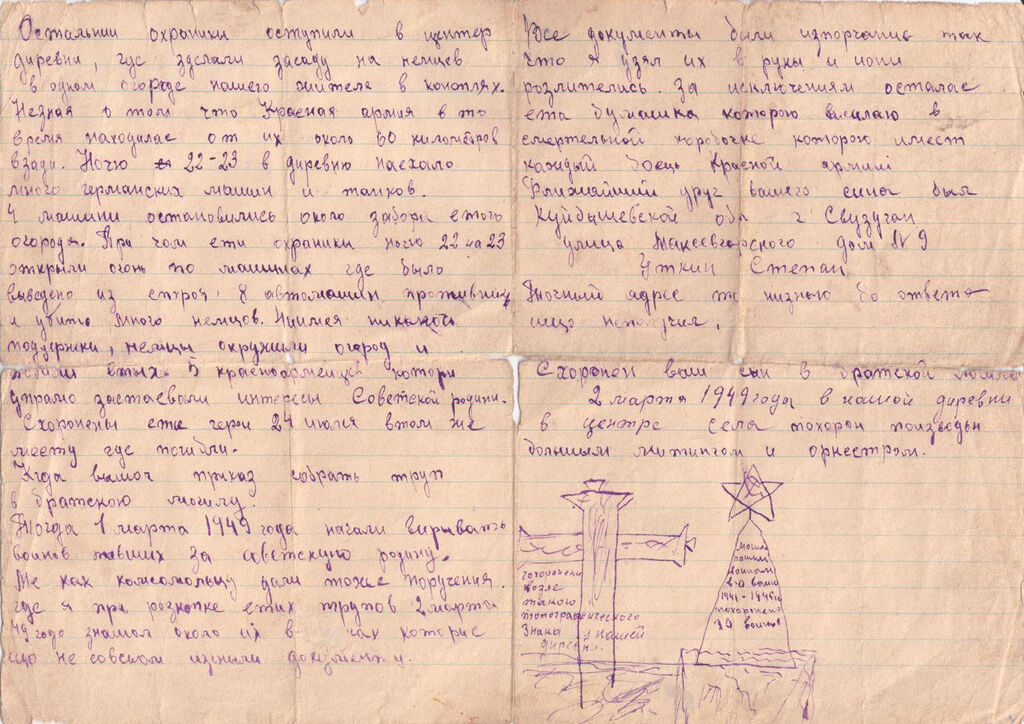 Остальнии охраники оступили в центер
диревни, где зделали засаду на немцев
в одном огороде нашего жителя в коноплях.
Незная о том что Красная армия в то
время находилас от их около 60 километров
взади. Ночю 22-23 в диревню наехало
много германских машин и танков.
4 машини остановились около забора етого
огорода. При чом ети охраники ночю 22 на 23
открыли огонь по машинах где было
выведено из строя 8 автомашин противника
и убито много немцов. Неимея никакой
поддержки, немцы окружили огород и
побили етых 5 красноармейцев котори
упрамо заставали интересы Советской родини.
Схоронены ети герои 24 июля втом же
месту где погибли.
Кгда вышоч приказ собрать труп
в братскою могилу.
Тогда 1 марта 1949 года начали вирывать
воинов павших за советскую родину.
Ме как комсомольцу дали тоже поручения
где я при розкопке етих трупов 2 марта
49 года знашол около их в
що не совсем изгнили документи.
Все документы были изпорчание так
что я узял их в руки и они
розлителись. За исключениям осталас
ета бумашка которою висилаю в
смертельной коробочке которою имеет
каждый боець Красной армиї
Ближайший друг вашего сина был
Куйбышевской обл г Свузуган
улица Максевгорского дом N 9
Уткин Степан
Точний адрес не низнаю бо ответа
ищо неполучил.
Схоронен ваш син в братской могиле
2 марта 1949 года в нашой диревни
в центре села похорон произведён
большим митингом и оркестром.
похоронени
возле
такого
топографического
знака в нашей
диревни.
Могила
пашим
воинам
в-о войни
1941-1945гг
похоронено
19 воинов